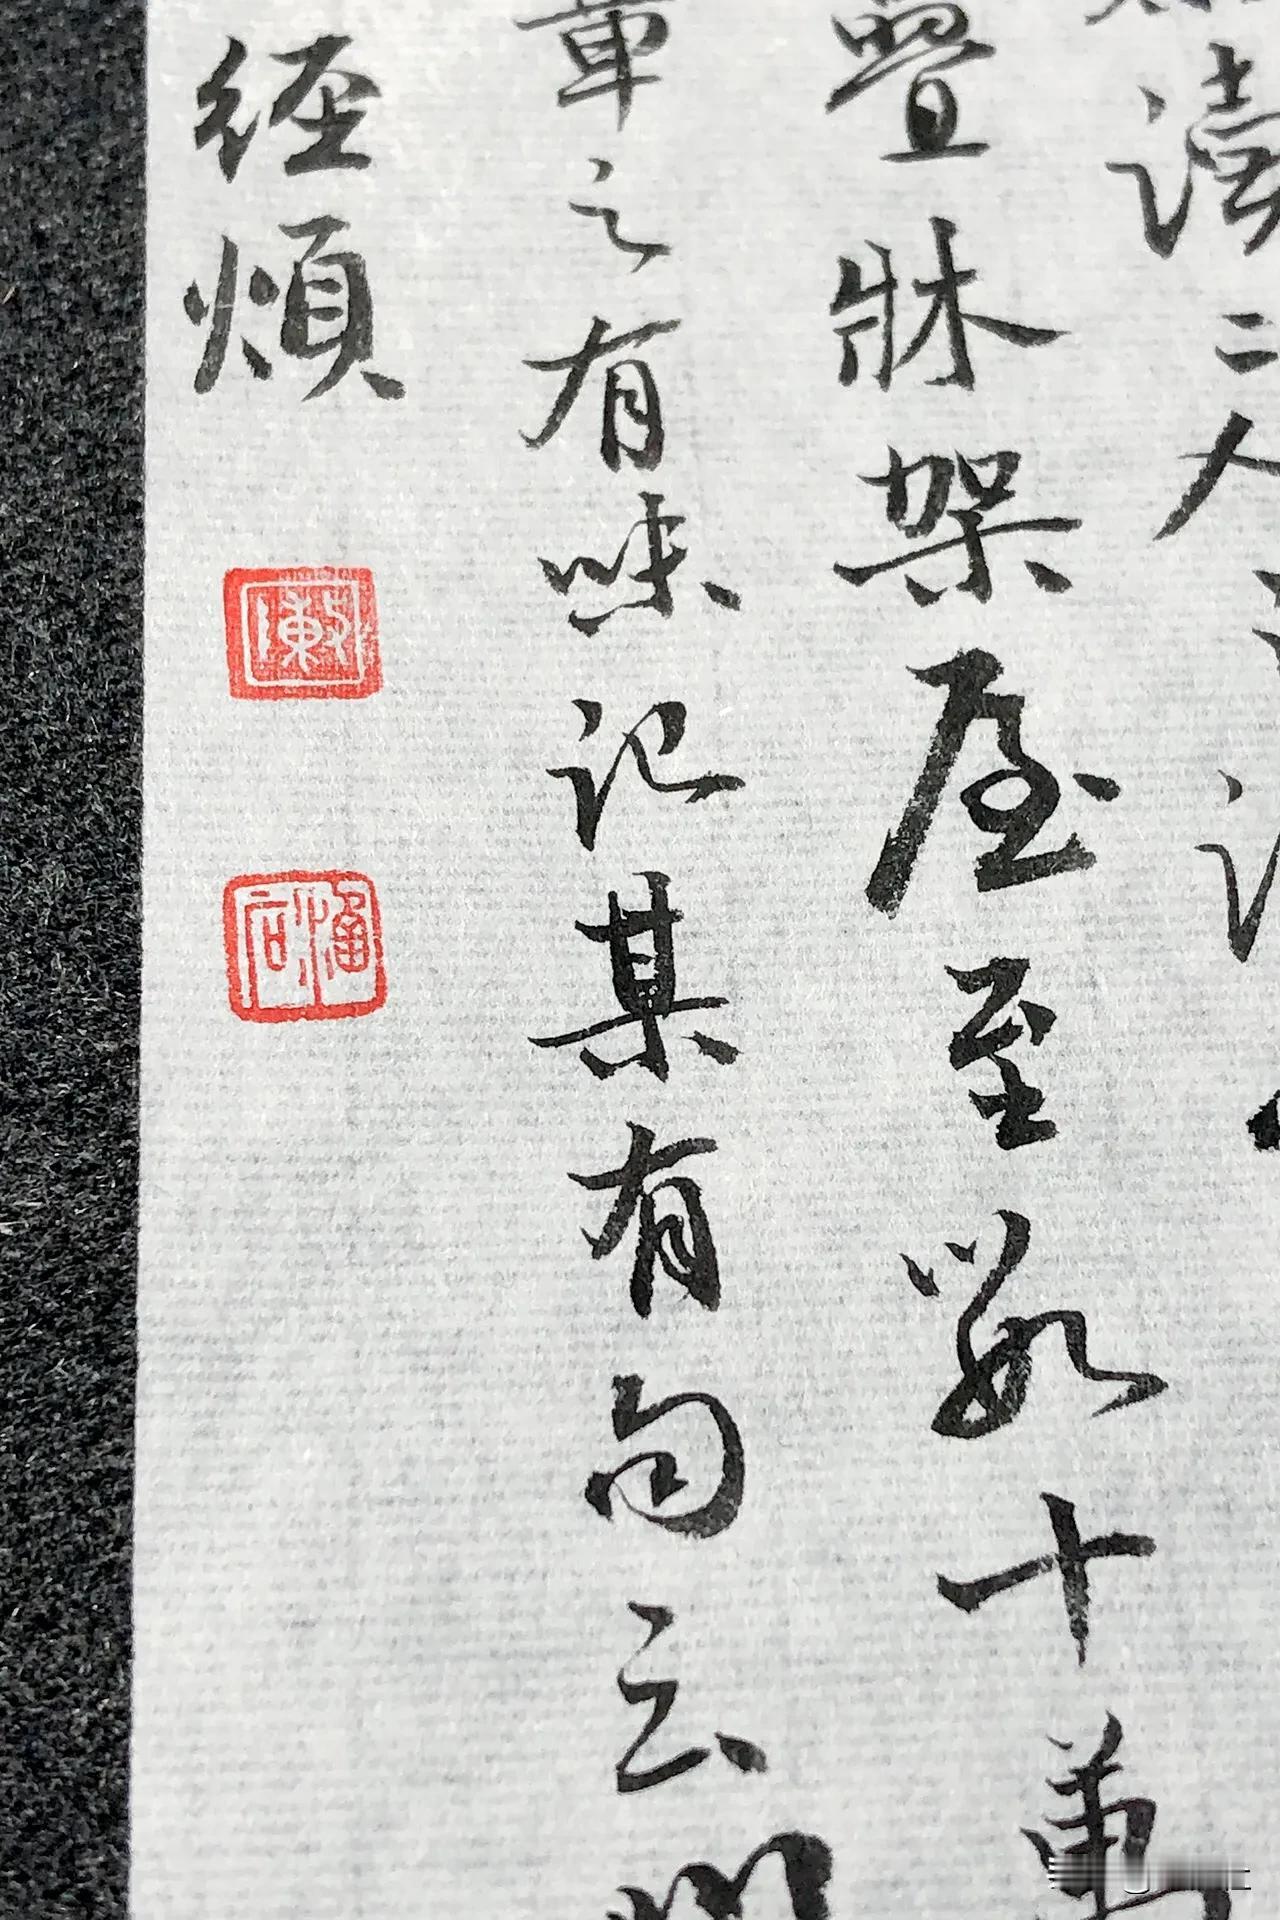 讀二人
疊牀架屋至數十萬
章之有味記某有句云
經煩
陳